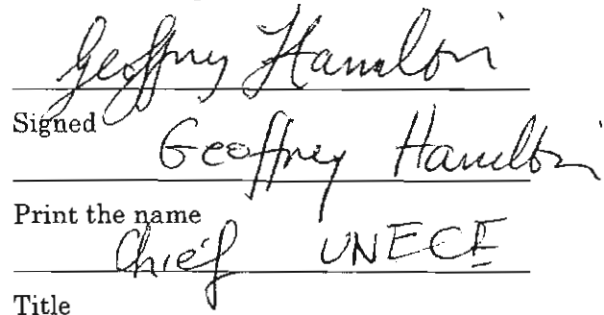 Geoffrey Hamilton
Signed
Geoffrey Hamilton
Print the name
Chief UNECE
Title